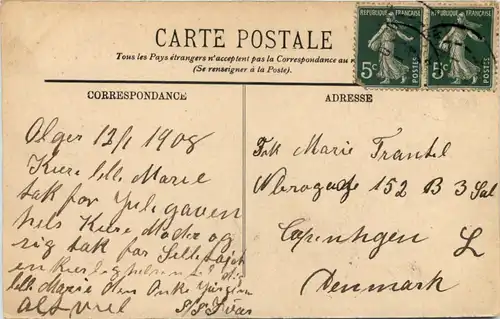 CARTE POSTALE
Tous les Pays étrangers n'acceptent pas la Correspondance au
(Se renseigner à la Poste).
REPUBLIQUE FRANÇAISE
5c
POSTES
REPUBLIQUE FRANÇAISE
5c
POSTES
CORRESPONDANCE
Alger 12/1 1908
Kiere lille Marie
tak for Jule gaven
hils Kiere Moder og
sig tak for
en
lille Marie den Onke
alt vel S/S
ADRESSE
Frk Marie
152 B 3 Sal
Copenhagen
L
Denmark